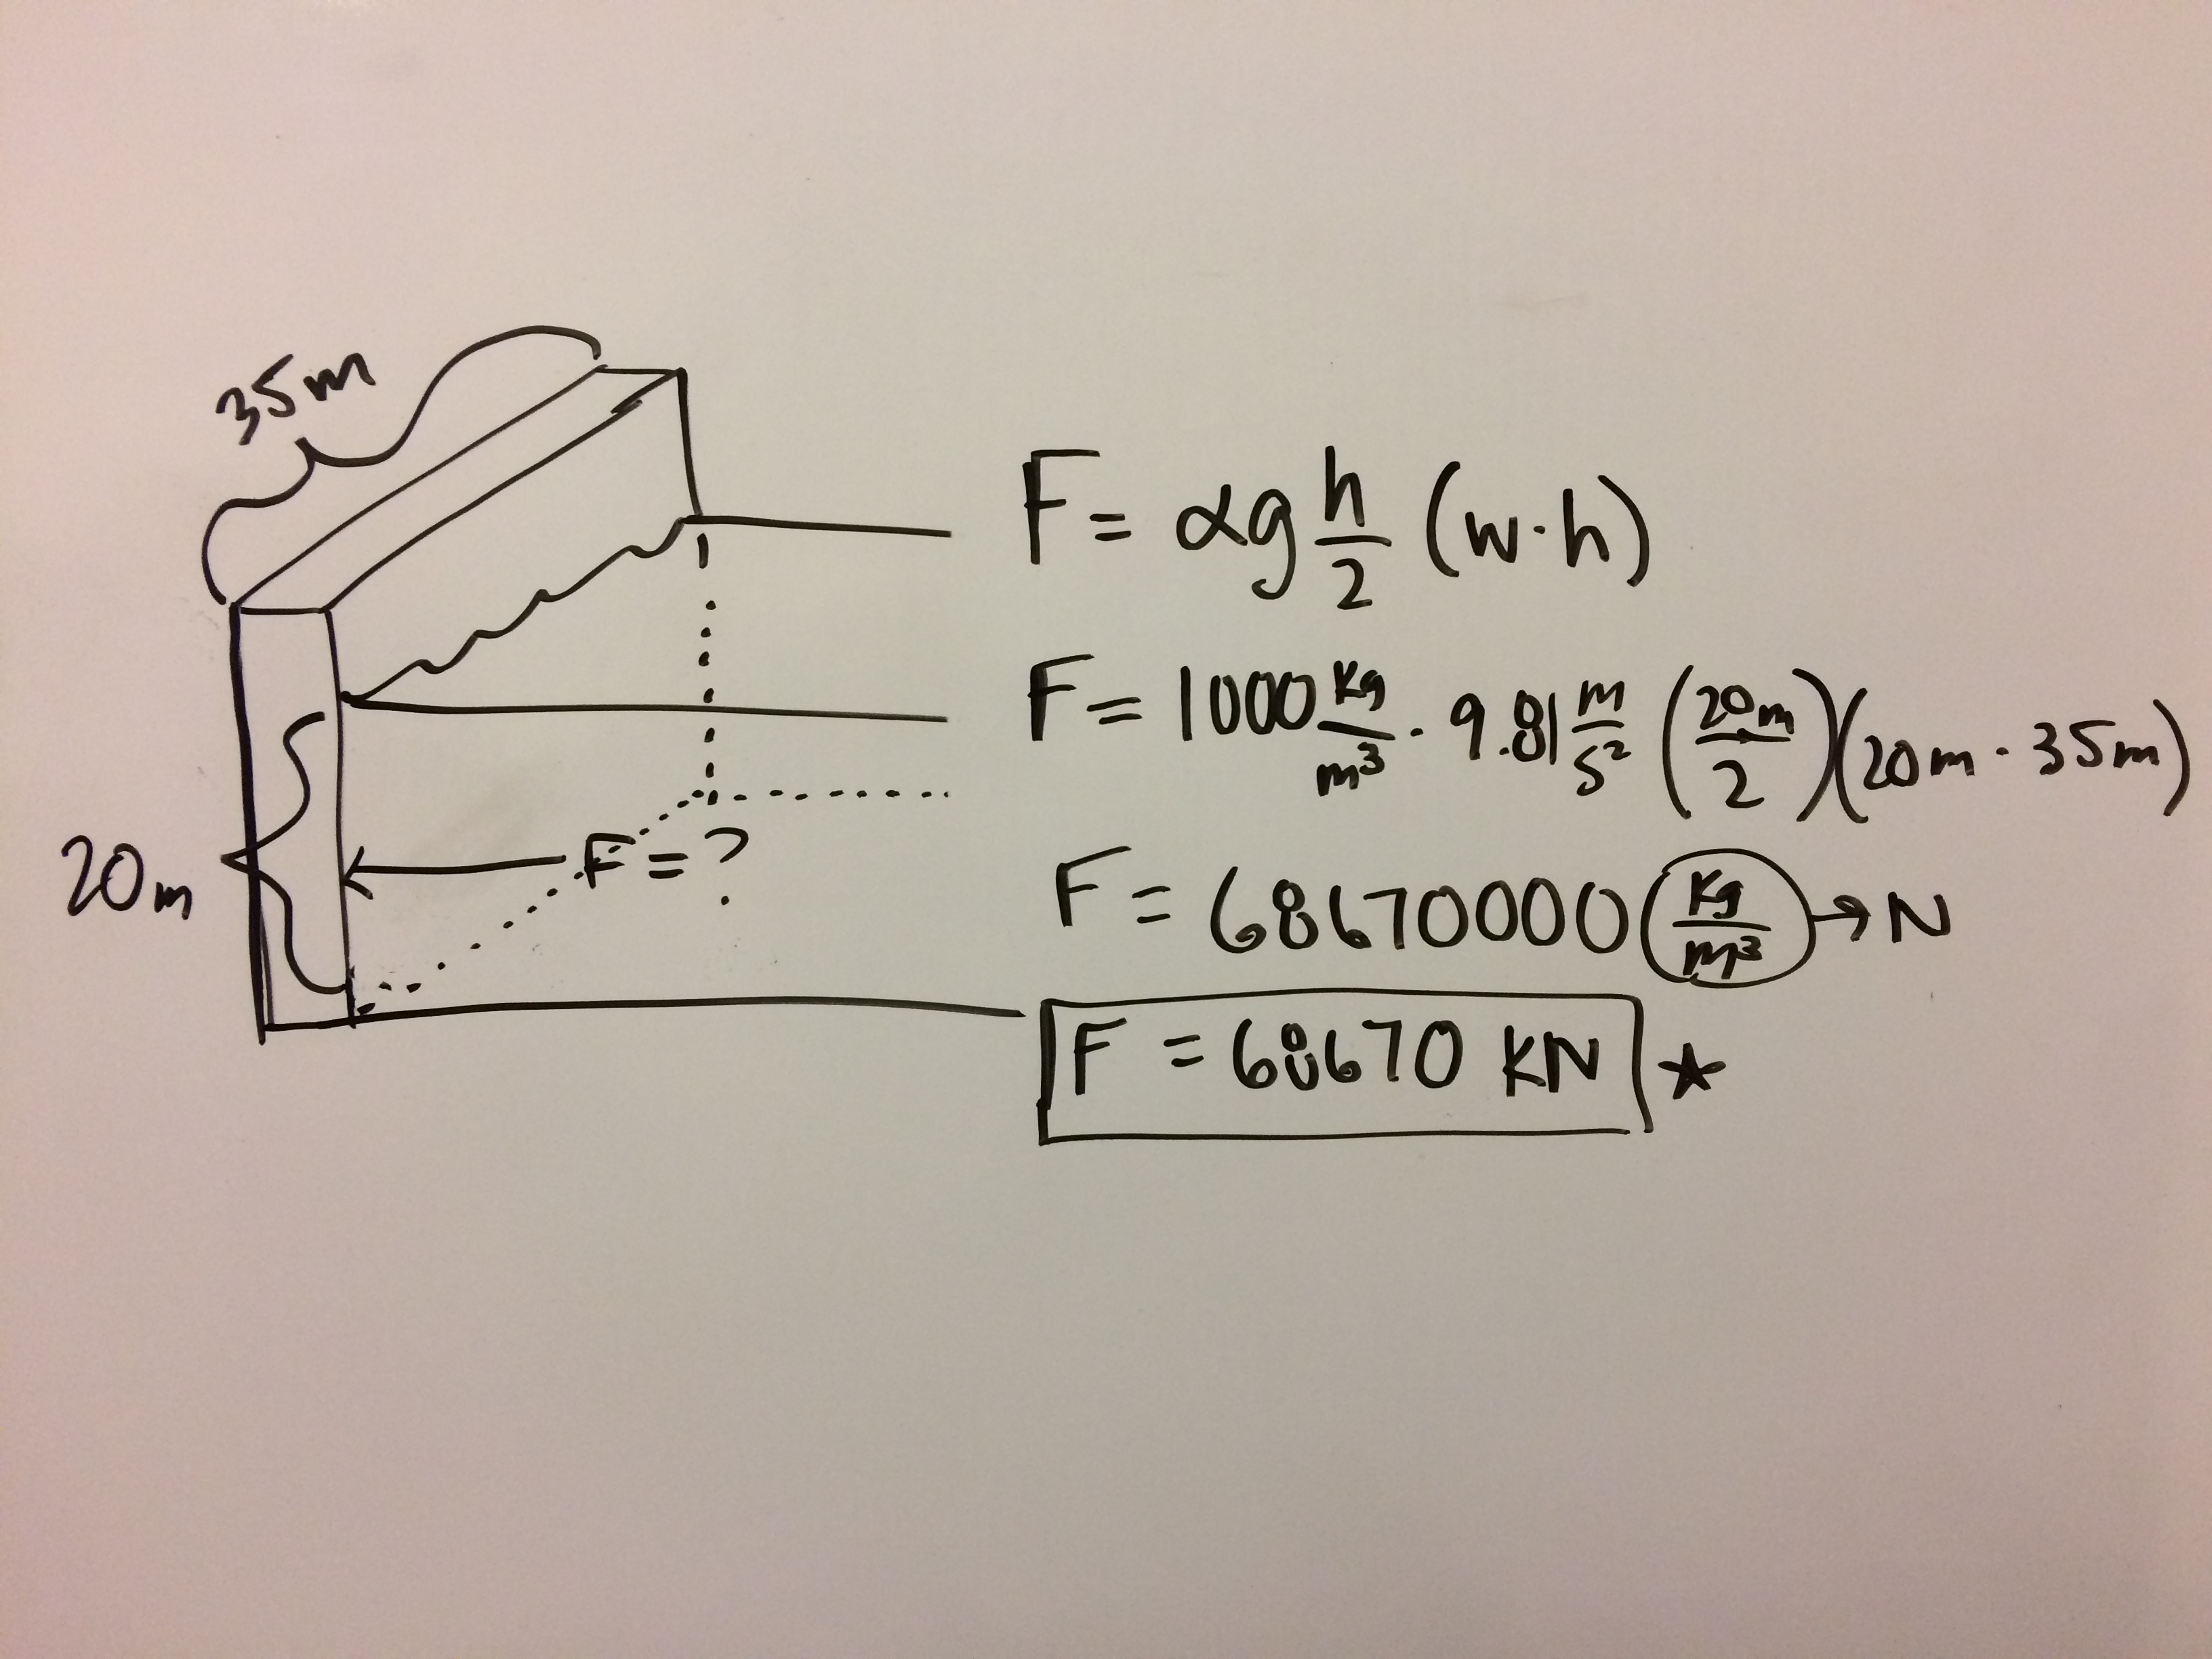 35m
F = αg h/2 (w·h)
F = 1000 kg/m³ · 9.81 m/s² (20m/2)(20m · 35m)
20m
F = ?
F = 68670000 kg/m³ → N
F = 68670 KN ★